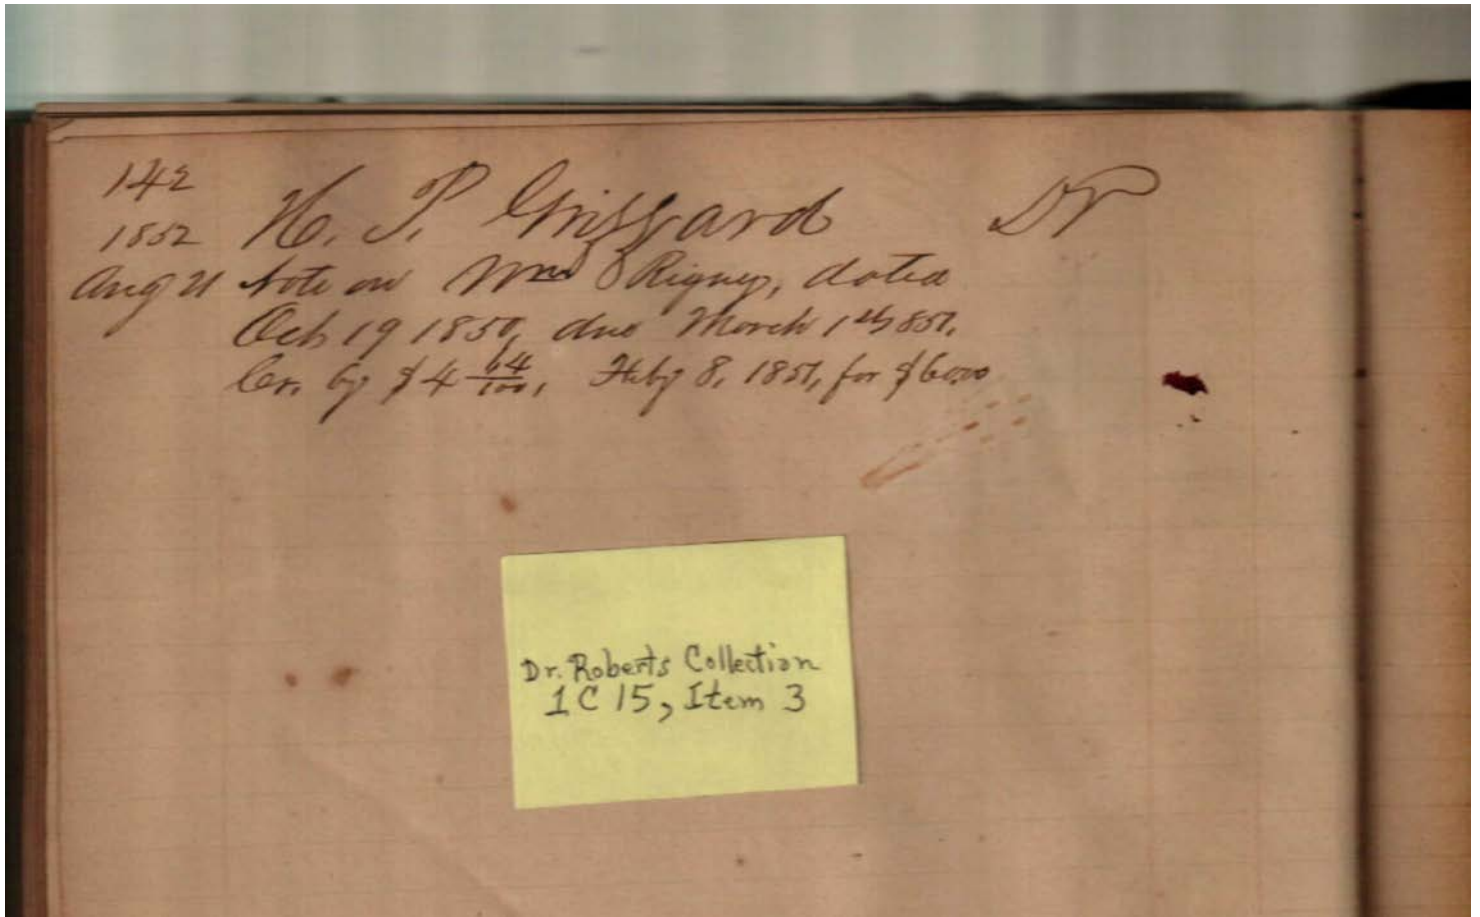 142
1852 H. P. Grizzard Dr
Aug 21 Note on Wm Rigney, dated
Oct 19 1850, due March 1st 1851,
Cr. by $4 64/100, Feby 8, 1851, for $60.00
Dr. Roberts Collection
1C15, Item 3